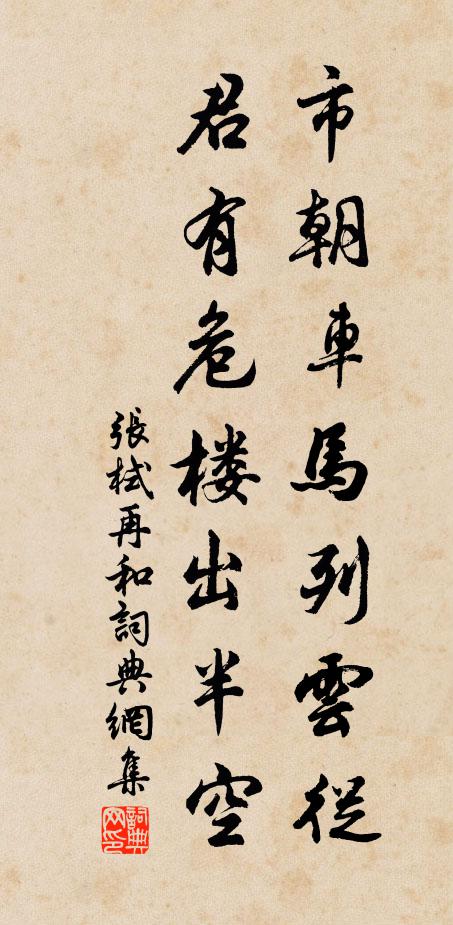 市朝車馬列雲從
君有危楼出半空
張栻再和詞典網集
詞典网印